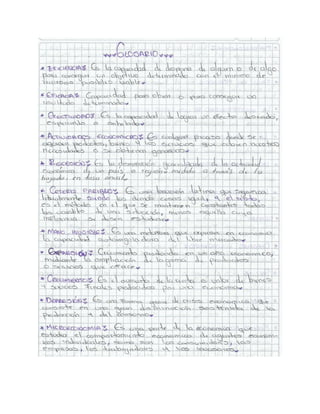 GLOSARIO
* EFICIENCIA: Es la capacidad de disponer de alguien o de algo
para conseguir un objetivo determinado con el mínimo de
recursos posibles viable.
* EFICACIA: Capacidad para obrar o para conseguir un
resultado determinado.
* EFECTIVIDAD: Es la capacidad de lograr un efecto deseado,
esperado o anhelado.
* ACTIVIDADES ECONOMICAS: Es cualquier proceso donde se
productos, bienes y los servicios que cubren nuestras
necesidades o se obtienen ganancias.
* RECESION: Es la disminución generalizada de la actividad
económica de un país o región medida a través de la
bajada en
* CETERIS PARIBUS: Es una locución latina que significa
literalmente siendo las demás cosas igual, y el resto,
es el método en el que se mantienen constantes todas
las variables de una situación, menos aquella cuya
influencia se desea estudiar.
* MANO INVISIBLE: Es una metáfora que expresa en economía
la capacidad autorreguladora del libre mercado.
* EXPANSION: Crecimiento producido en un área económica,
mediante la ampliación de la gama de productos
o servicios que ofrece.
* CRECIMIENTO: Es el aumento de la renta o valor de bienes
y servicios finales producidos por una economía.
* DEPRESION: Es una forma grave de crisis económica que
consiste en una gran disminución sostenida de la
producción y del consumo.
* MICROECONOMIA: Es una parte de la economía que
estudia el comportamiento económico de agentes económi-
cos individuales, como son los consumidores, las
empresas, los trabajadores y los inversores.